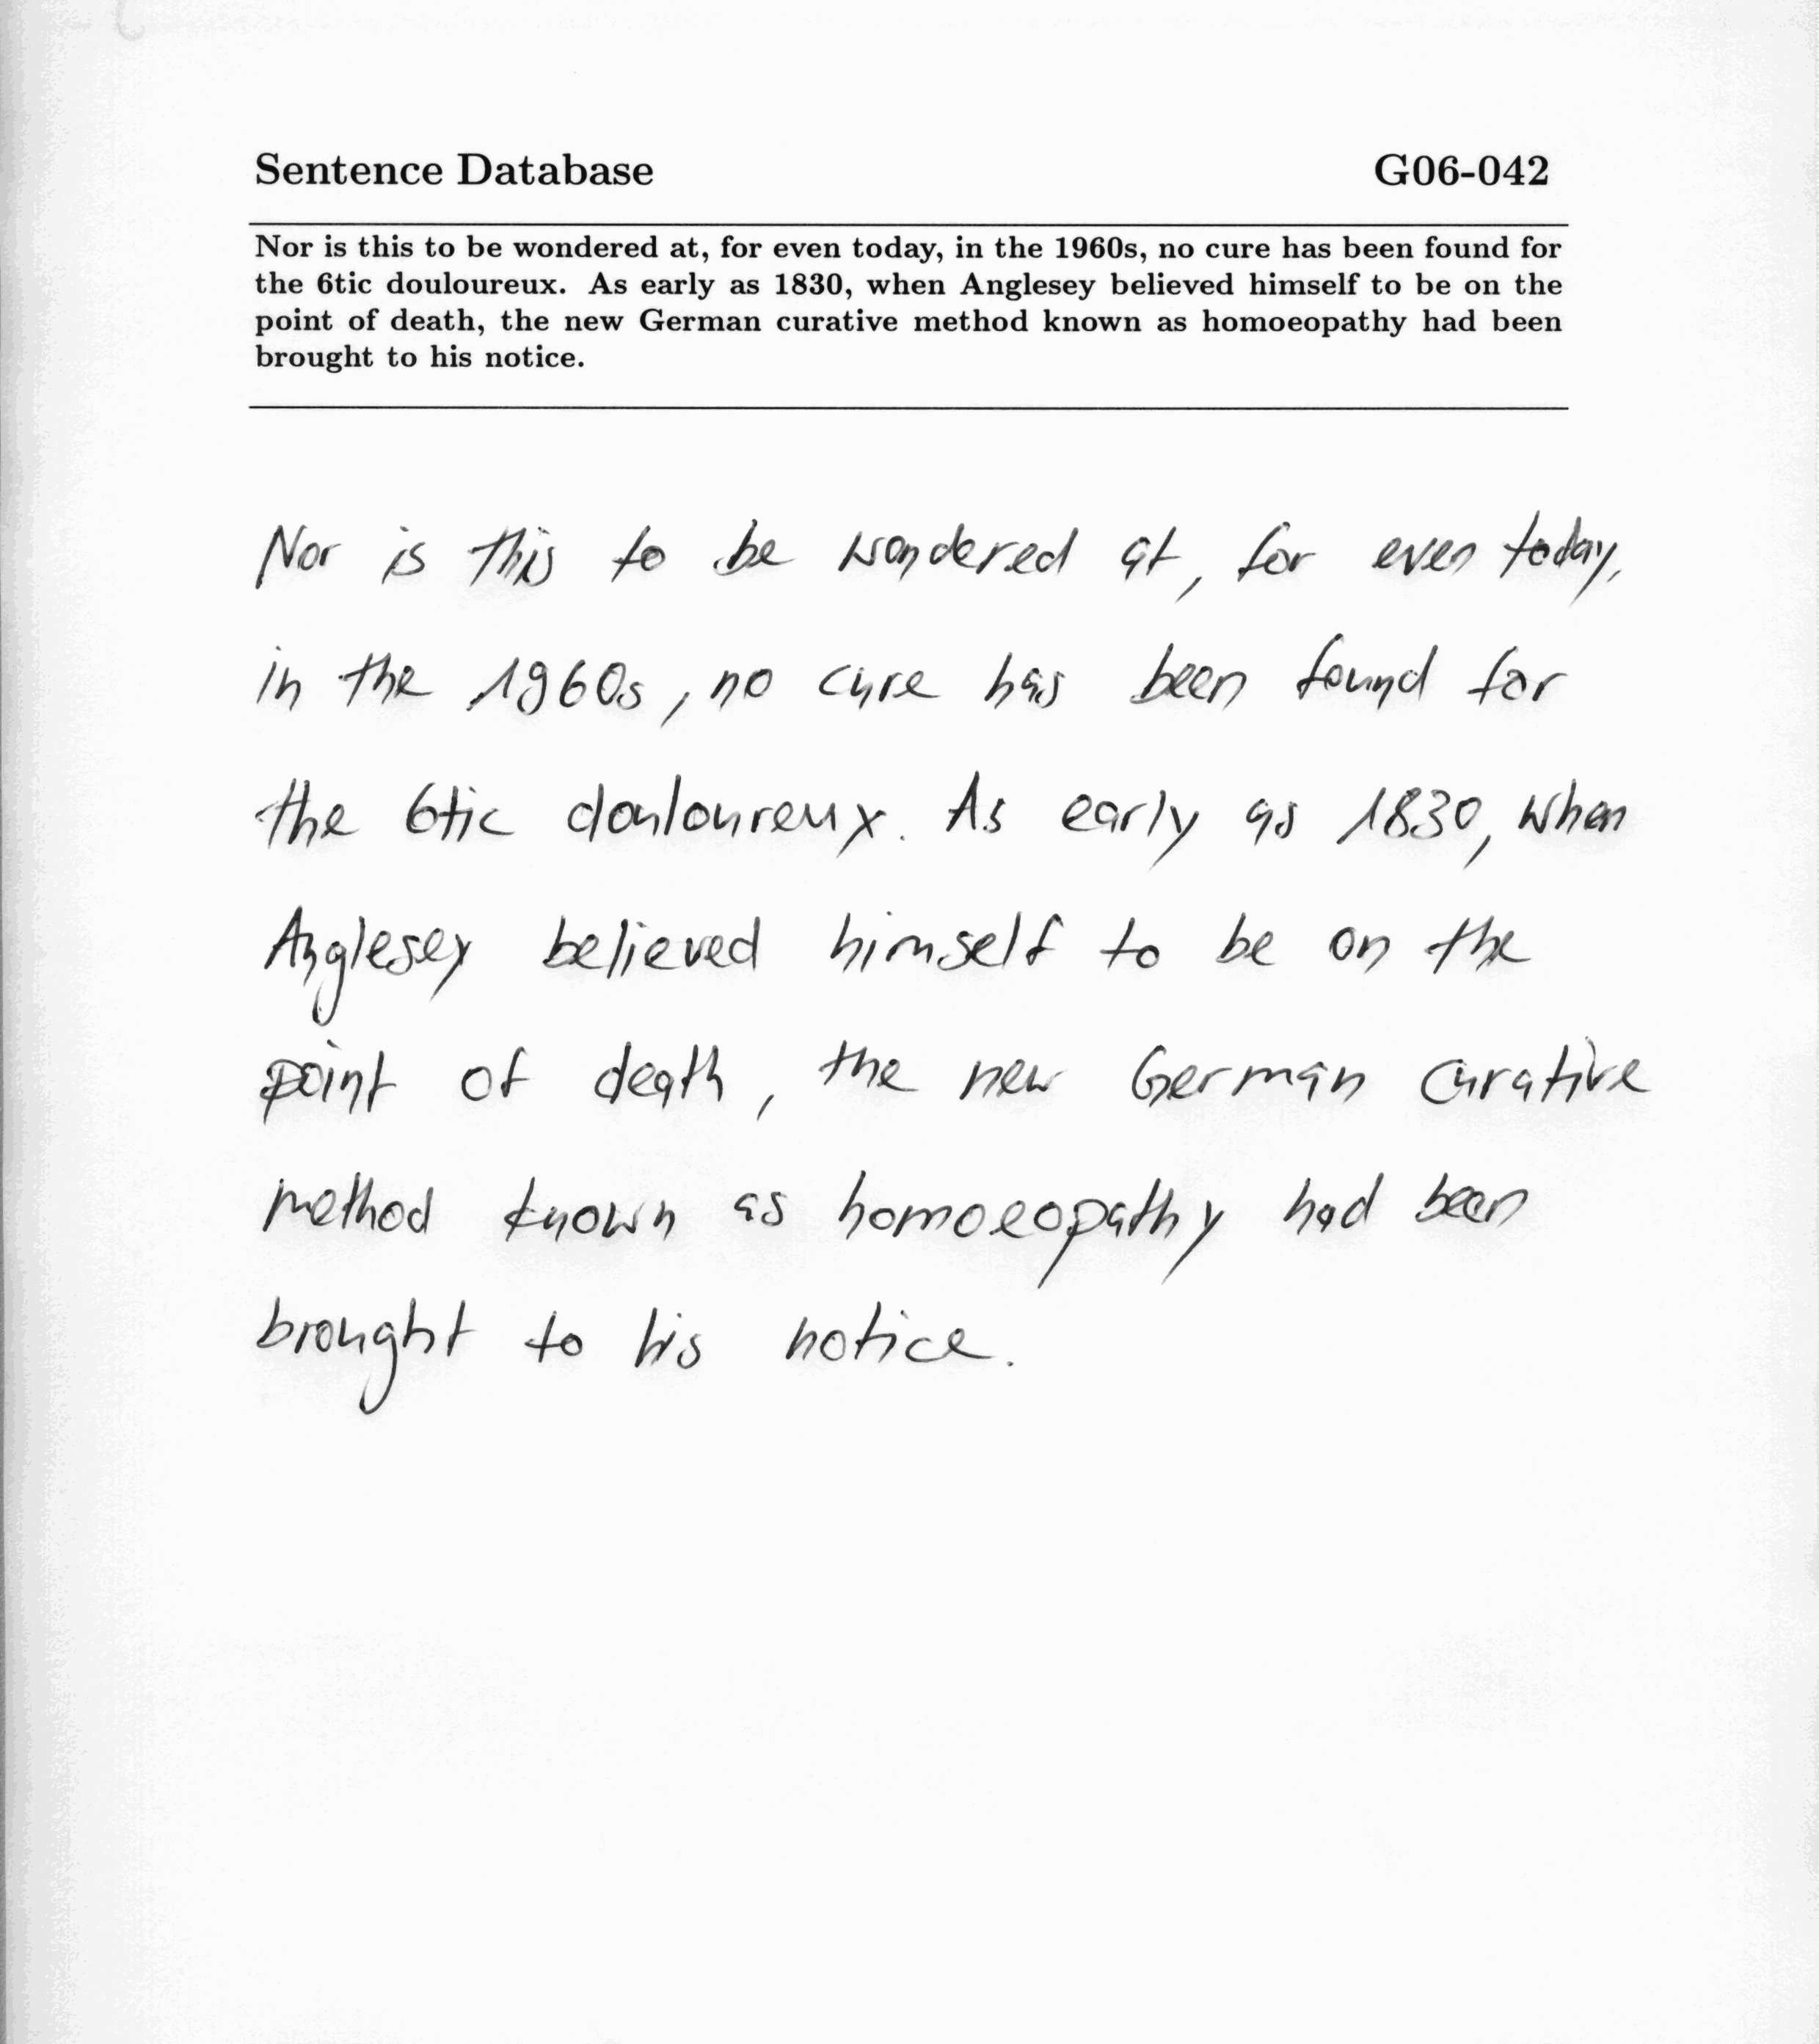 Sentence Database G06-042
Nor is this to be wondered at, for even today, in the 1960s, no cure has been found for
the 6tic douloureux. As early as 1830, when Anglesey believed himself to be on the
point of death, the new German curative method known as homoeopathy had been
brought to his notice.
Nor is this to be wondered at, for even today,
in the 1960s, no cure has been found for
the 6tic douloureux. As early as 1830, when
Anglesey believed himself to be on the
point of death, the new German curative
method known as homoeopathy had been
brought to his notice.